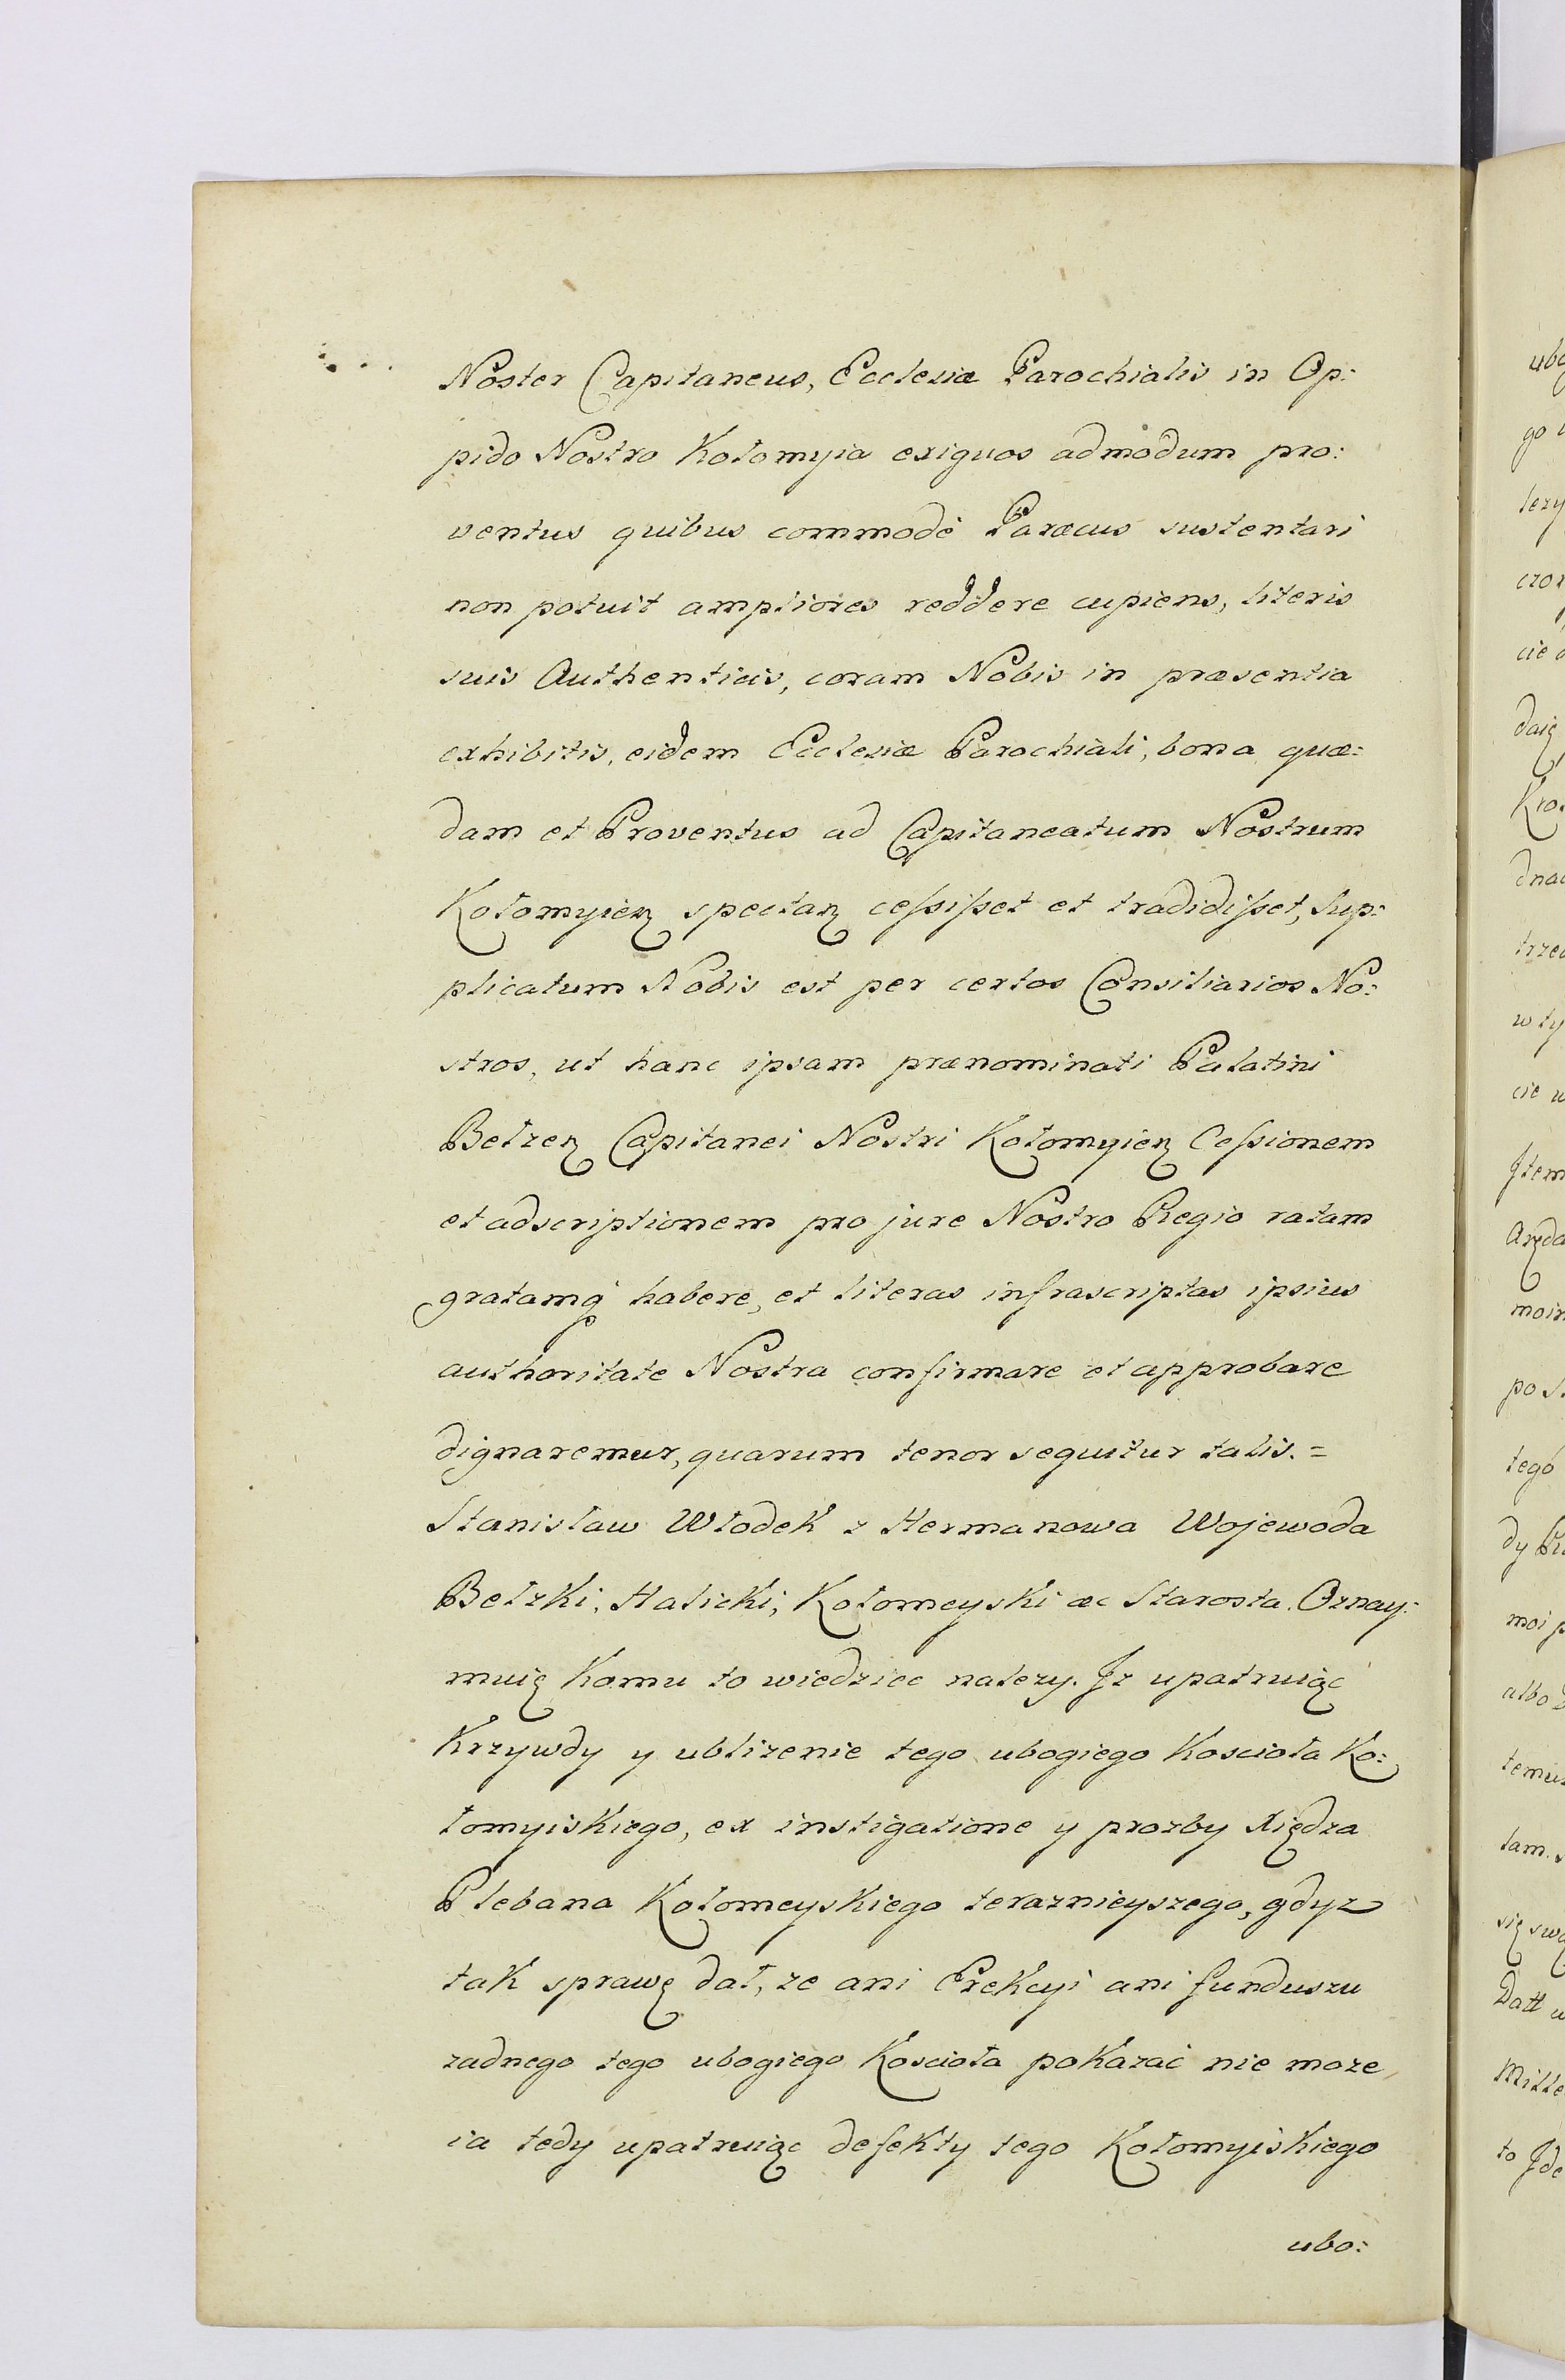 Noster Capitaneus, Ecclesiæ Parochialis in Op:
pido Nostro Kołomyia exiguos admodum pro:
ventus quibus commodè Paræcus sustentari
non potuit ampliores reddere cupiens, literis
suis Authenticis, coram Nobis in præsentia
exhibitis, eidem Ecclesiæ Parochiali, bona quæ:
dam et Proventus ad Capitaneatum Nostrum
Kołomyieꝶ spectaꝶ cessisset et tradidisset, Sup:
plicatum Nobis est per certos Consiliarios No:
stros, ut hanc ipsam prænominati Palatini
Bełzeꝶ Capitanei Nostri Kołomyieꝶ Cessionem
et adscriptionem pro jure Nostro Regio ratam
gratamq́ habere, et literas infrascriptas ipsius
authoritate Nostra confirmare et approbare
dignaremur, quarum tenor sequitur talis. =
Stanisław Włodek z Hermanowa Wojewoda
Bełzki, Halicki, Kołomeyski æc Starosta. Oznay:
muię Komu to wiedziec nalezy. Jz upatruiąc
Krzywdy y ublizenie tego ubogiego Koscioła Ko:
łomyiskiego, ex instigatione y prozby Xiędza
Plebana Kołomeyskiego teraznieyszego, gdyz
tak sprawę dał, ze ani Erekcyi ani funduszu
zadnego tego ubogiego Koscioła pokazać nie moze
ia tedy upatruiąc defekty tego Kołomyiskiego
ubo: